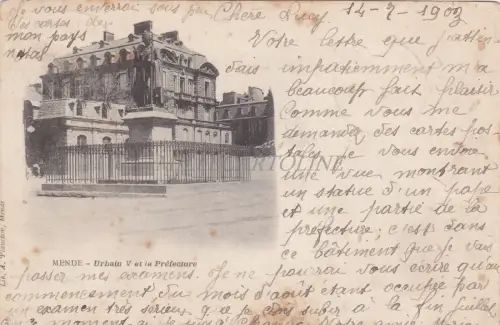 Je vous enverrai sous peu Chère Lucy 14-7-1902
des cartes de
mon pays
natal
Votre lettre que j'atten-
dais impatiemment m'a
beaucoup fait plaisir
Comme vous me
demandez des cartes pos-
tales je vous envoie
une vue montrant
un statue d'un pape
et une partie de la
préfecture; c'est dans
ce bâtiment que je vais
MENDE - Urbain V et la Préfecture
passer mes examens. Je ne pourrai vous écrire qu'au
commencement du mois d'août étant occupée par
un examen très sérieux que je dois subir à la fin juillet
moment
CARTOLINE